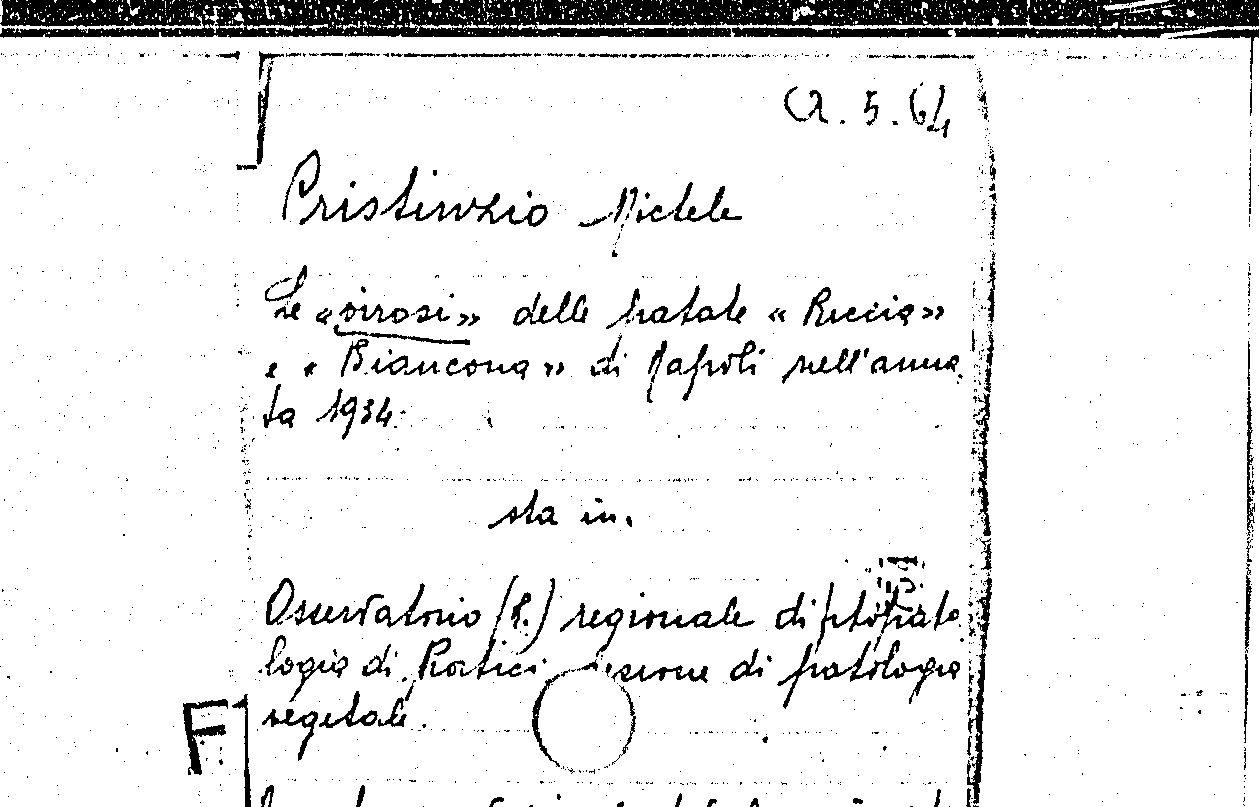 a. 5. 64
Cristinzio Michele
Le «virosi» delle patate « Riccia»
e « Biancona» di Napoli nell'anna
ta 1934.
sta in.
Osservatorio (R.) regionale di fitopato
logia di Portici sezione di patologia
vegetale.
F